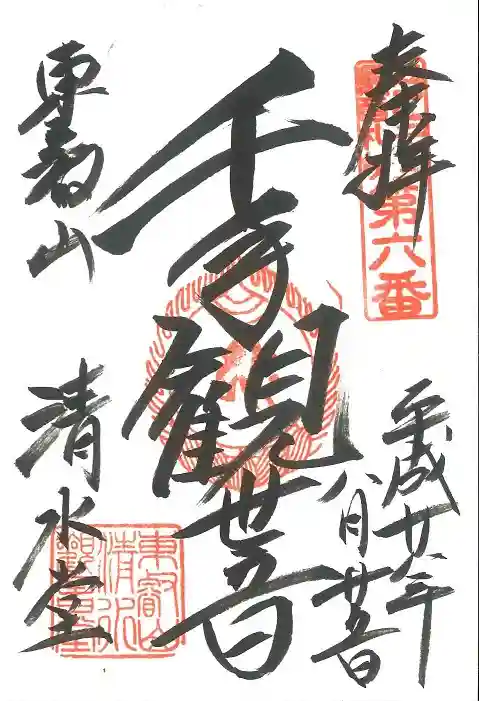 奉拝
第六番
千手観世音
平成廿八年
八月廿五日
東叡山
清水堂
東叡山
清水
觀音堂